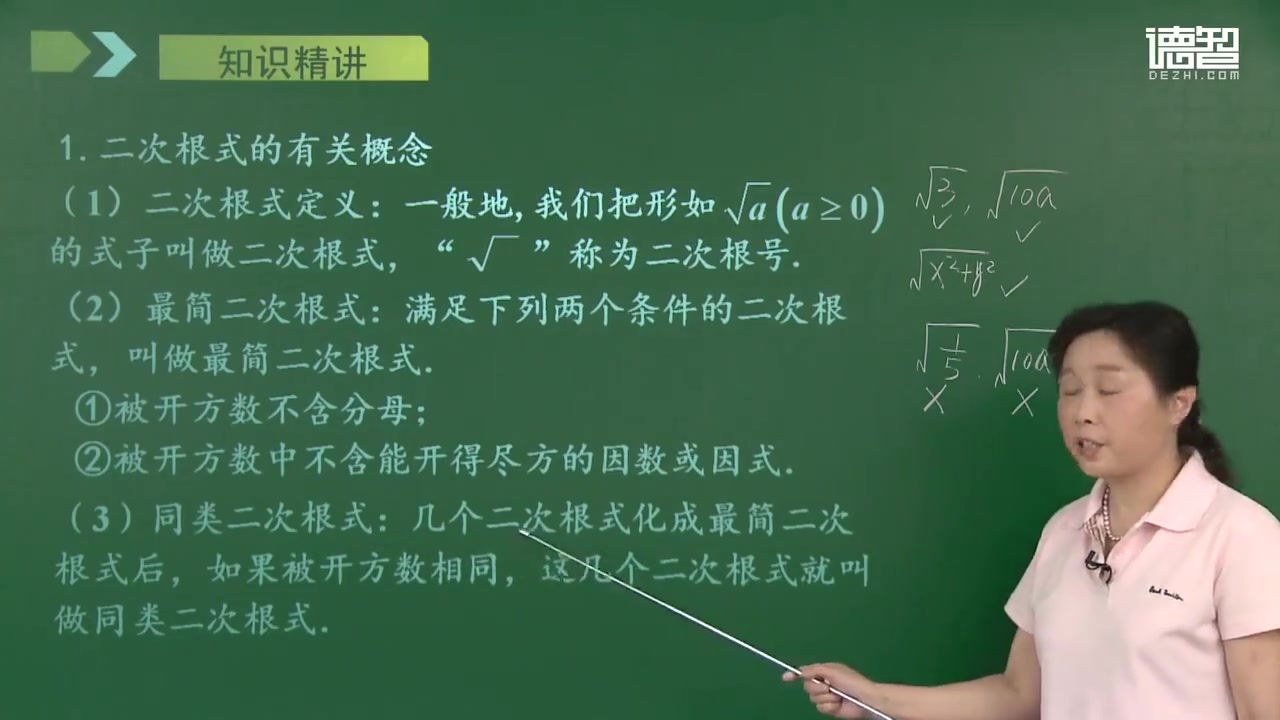 知识精讲
德智
DEZHI.COM
1.二次根式的有关概念
（1）二次根式定义：一般地,我们把形如√a(a≥0)
的式子叫做二次根式，“√ ”称为二次根号.
（2）最简二次根式：满足下列两个条件的二次根
式，叫做最简二次根式.
①被开方数不含分母；
②被开方数中不含能开得尽方的因数或因式.
（3）同类二次根式：几个二次根式化成最简二次
根式后，如果被开方数相同，这几个二次根式就叫
做同类二次根式.
√3, √10a
✓ ✓
√x²+y² ✓
√1/5. √10a
× ×
Paul Smith